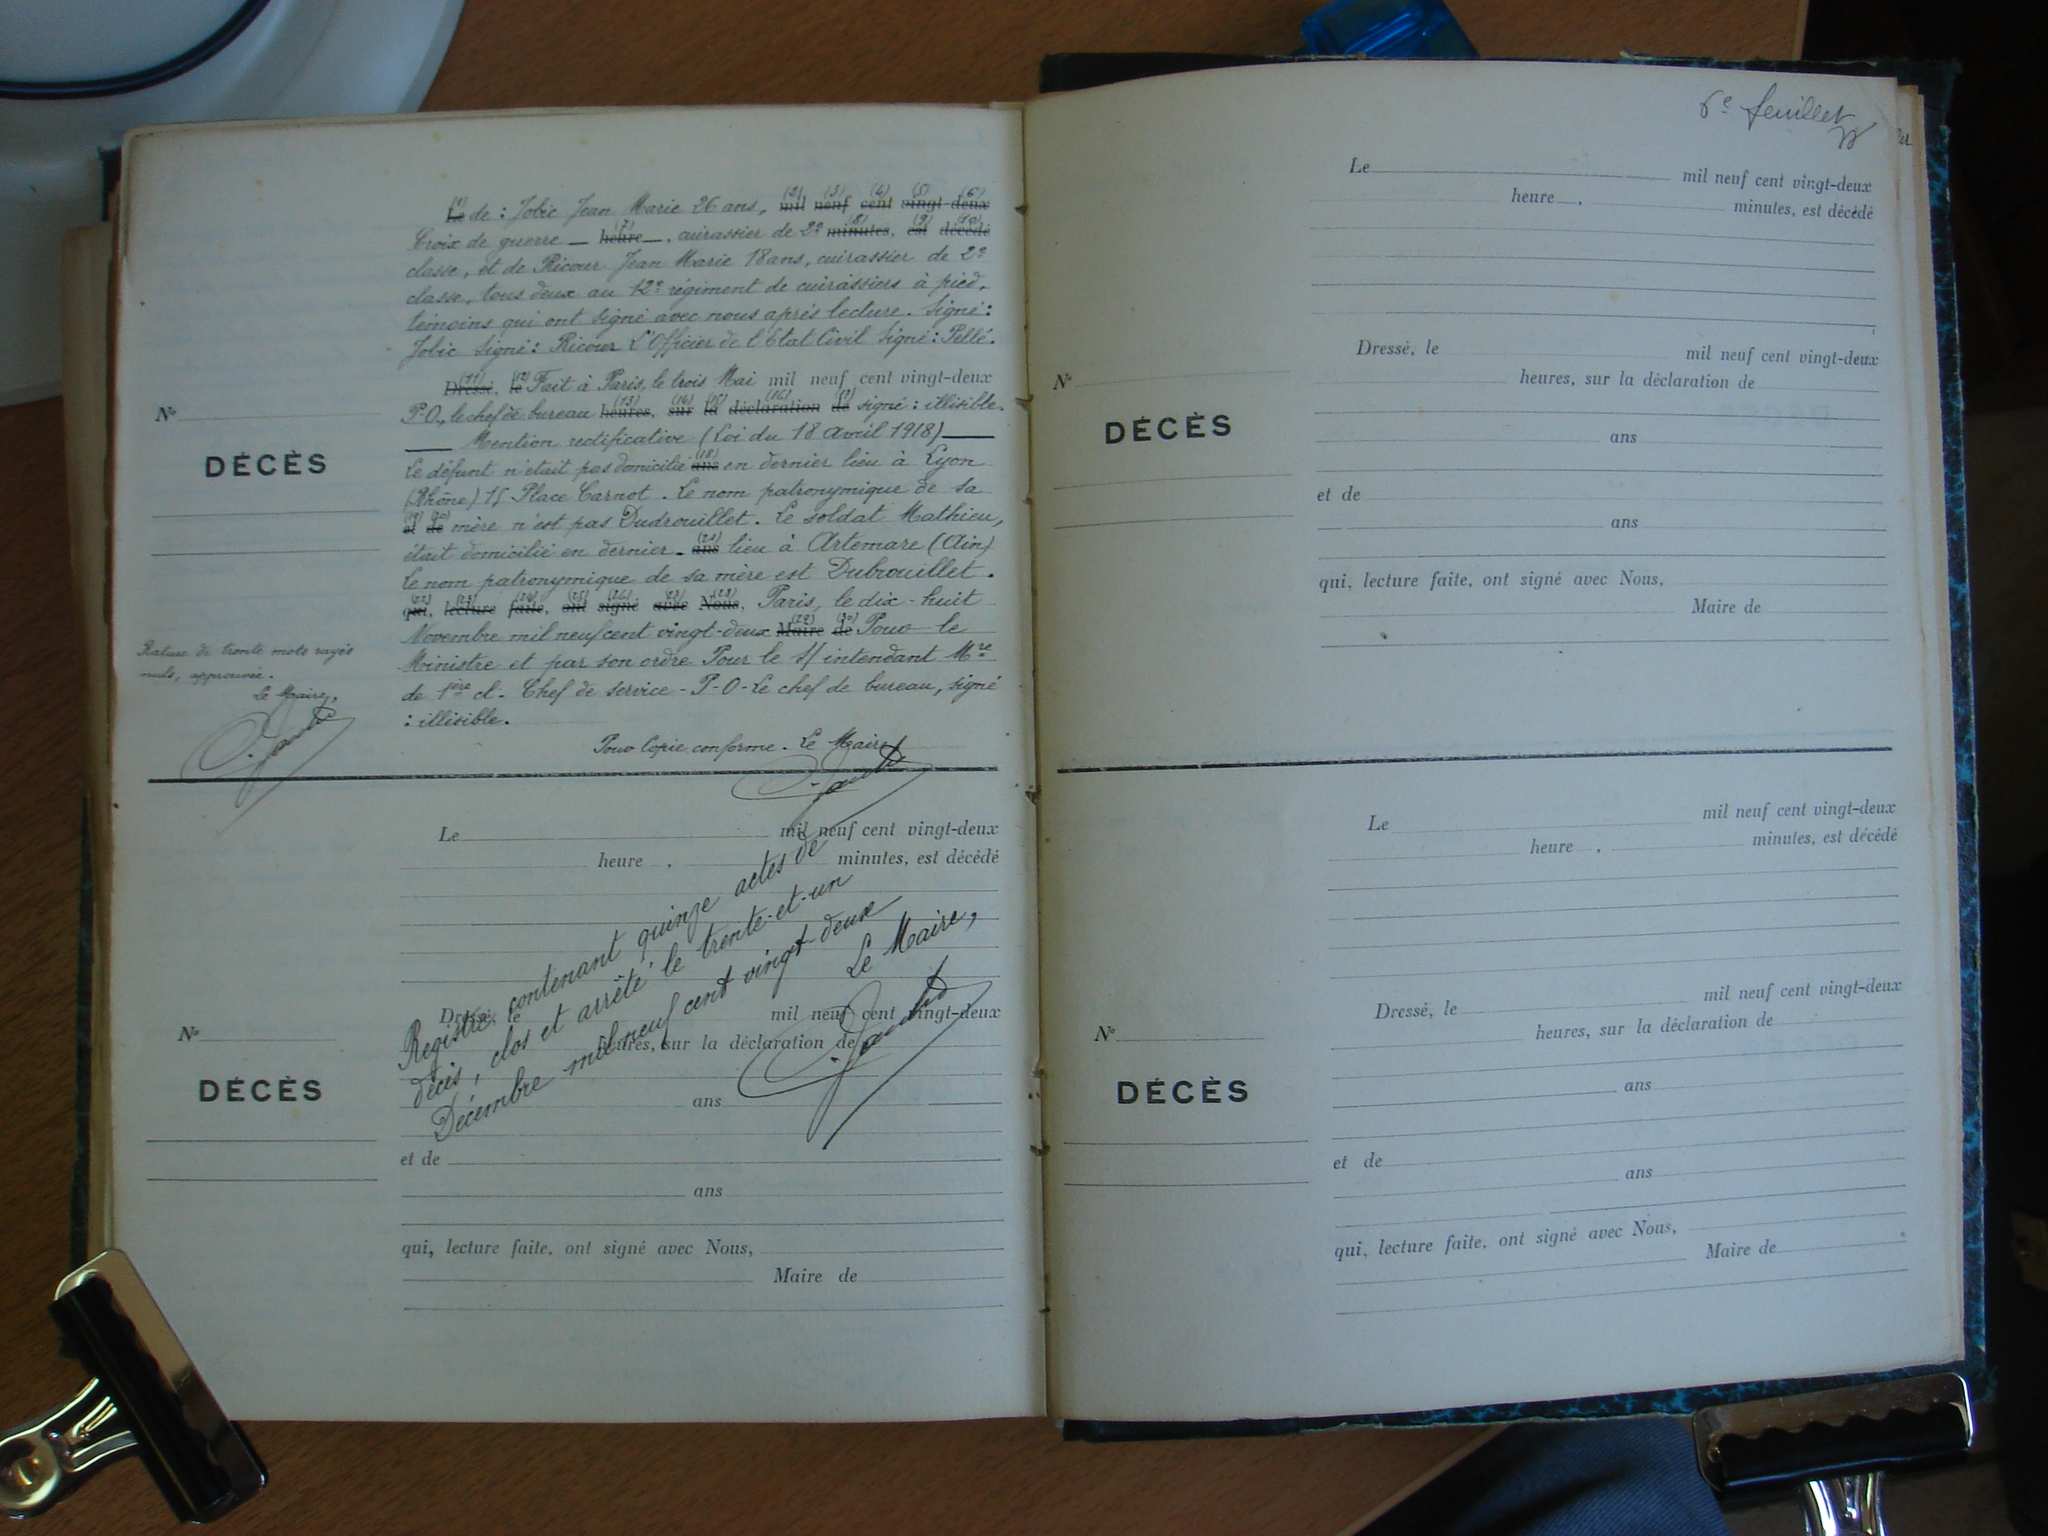 Le de : Jobic Jean Marie 26 ans, mil neuf cent vingt-deux
(1) (2) (3) (4) (5) (6)
Croix de guerre — heure —, cuirassier de 2e minutes, est décédé
(7) (8) (9) (10)
classe, et de Ricour Jean Marie 18 ans, cuirassier de 2e
classe, tous deux au 12e régiment de cuirassiers à pied,
témoins qui ont signé avec nous après lecture. Signé :
Jobic Signé : Ricour L'Officier de l'Etat Civil Signé : Pellé.
Dressé, le Fait à Paris, le trois Mai mil neuf cent vingt-deux
(11) (12)
P.O., le chef de bureau heures, sur la déclaration de signé : illisible.
(13) (14) (15) (16) (17)
Mention rectificative (Loi du 18 avril 1918)
Le défunt n'était pas domicilié ans en dernier lieu à Lyon
(18)
(Rhône) 15 Place Carnot. Le nom patronymique de sa
et de mère n'est pas Dudrouillet. Le soldat Mathieu,
(19) (20)
était domicilié en dernier - ans lieu à Artemare (Ain)
(21)
Le nom patronymique de sa mère est Dubrouillet.
qui, lecture faite, ont signé avec Nous, Paris, le dix-huit
(22) (23) (24) (25) (26) (27) (28)
Novembre mil neuf cent vingt-deux Maire de Pour le
(29) (30)
Ministre et par son ordre Pour le S/intendant Mre
de 1ère cl. Chef de service - P-O- Le chef de bureau, signé
: illisible.
Pour Copie conforme. Le Maire,
No
DÉCÈS
Rature de trente mots rayés
nuls, approuvée.
Le Maire,
Le mil neuf cent vingt-deux
heure , minutes, est décédé
Dressé, le mil neuf cent vingt-deux
heures, sur la déclaration de
ans
et de
ans
qui, lecture faite, ont signé avec Nous,
Maire de
No
DÉCÈS
Registre contenant quinze actes de
décès, clos et arrêté le trente-et-un
Décembre mil neuf cent vingt-deux
Le Maire,
6e feuillet
Le mil neuf cent vingt-deux
heure , minutes, est décédé
Dressé, le mil neuf cent vingt-deux
No
heures, sur la déclaration de
DÉCÈS
ans
et de
ans
qui, lecture faite, ont signé avec Nous,
Maire de
Le mil neuf cent vingt-deux
heure , minutes, est décédé
Dressé, le mil neuf cent vingt-deux
No
heures, sur la déclaration de
DÉCÈS
ans
et de
ans
qui, lecture faite, ont signé avec Nous,
Maire de